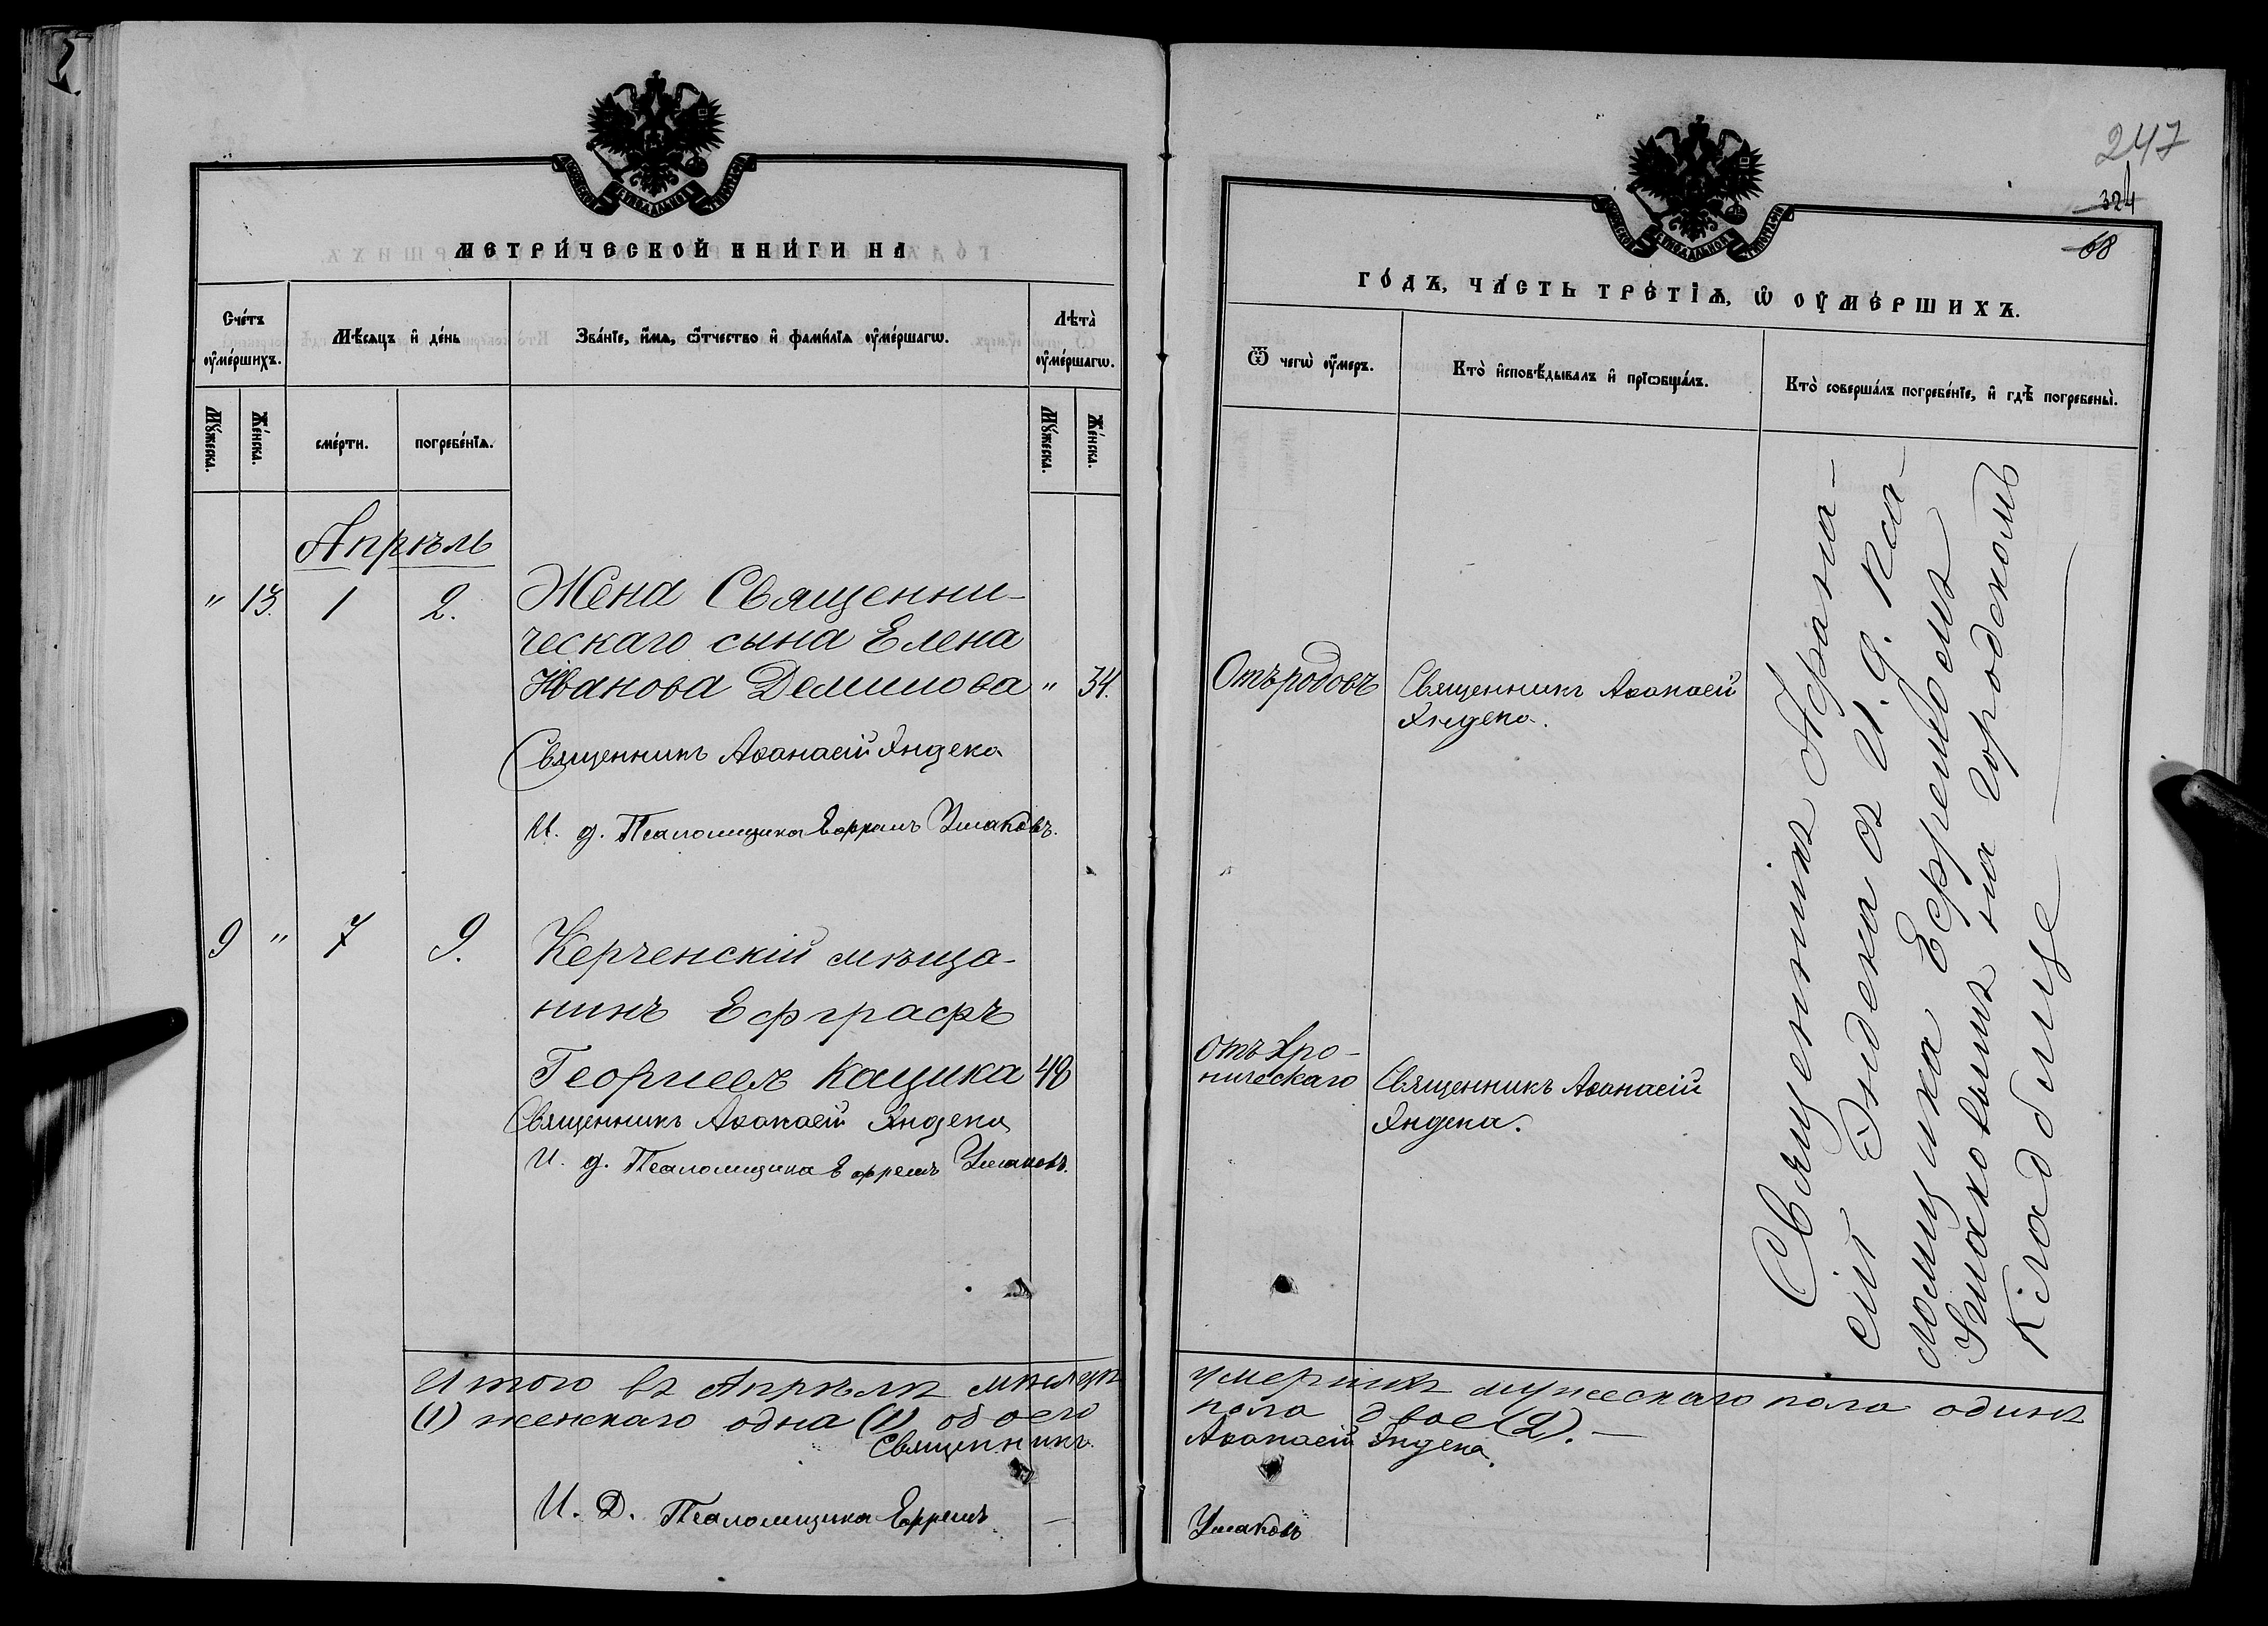 МЕТРИ́ЧЕСКОЙ КНИ́ГИ НА
Сче́тъ оу҆ме́ршихъ.
Мѣ́сяцъ и҆ де́нь
Зва́нїе, и҆́мѧ, ѻ҆́тчество и҆ фами́лїѧ оу҆ме́ршагѡ.
Лѣта̀ оу҆ме́ршагѡ.
Мꙋ́жеска.
Же́нска.
сме́рти.
погребе́нїѧ.
Мꙋ́жеска.
Же́нска.
Апрѣль
" 13. 1 2. Жена Священни-
ческаго сына Елена
Иванова Демишова " 34.
Священникъ Аѳанасій Яндека
И. д. Псаломщика Ефремъ Ушаковъ.
9 " 7 9. Керченскій мѣща-
нинъ Ефграфъ
Георгіевъ Кащика 48
Священникъ Аѳанасій Яндека
И. д. Псаломщика Ефремъ Ушаковъ.
Итого въ Апрѣлѣ мѣсяцѣ
(1) женскаго одна (1) обоего
Священникъ
И. Д. Псаломщика Ефремъ
247
324
68
ГО́ДЪ, ЧА́СТЬ ТРЕ́ТЇѦ, Ѡ҆ ОУ҆МЕ́РШИХЪ.
Ѿ чегѡ̀ оу҆́меръ.
Кто̀ и҆сповѣ́дывалъ и҆ прїѡбща́лъ.
Кто̀ соверша́лъ погребе́нїе, и҆ гдѣ̀ погребены̀.
Отъ родовъ
Священникъ Аѳанасій
Яндека.
Отъ хро-
ническаго
Священникъ Аѳанасій
Яндека.
Священникъ Афана-
сій Яндека съ И. д. Пса-
ломщика Ефремомъ
Ушаковымъ на Городскомъ
Кладбище
умершихъ мужескаго пола одинъ
пола двое (2). —
Аѳанасій Яндека.
Ушаковъ